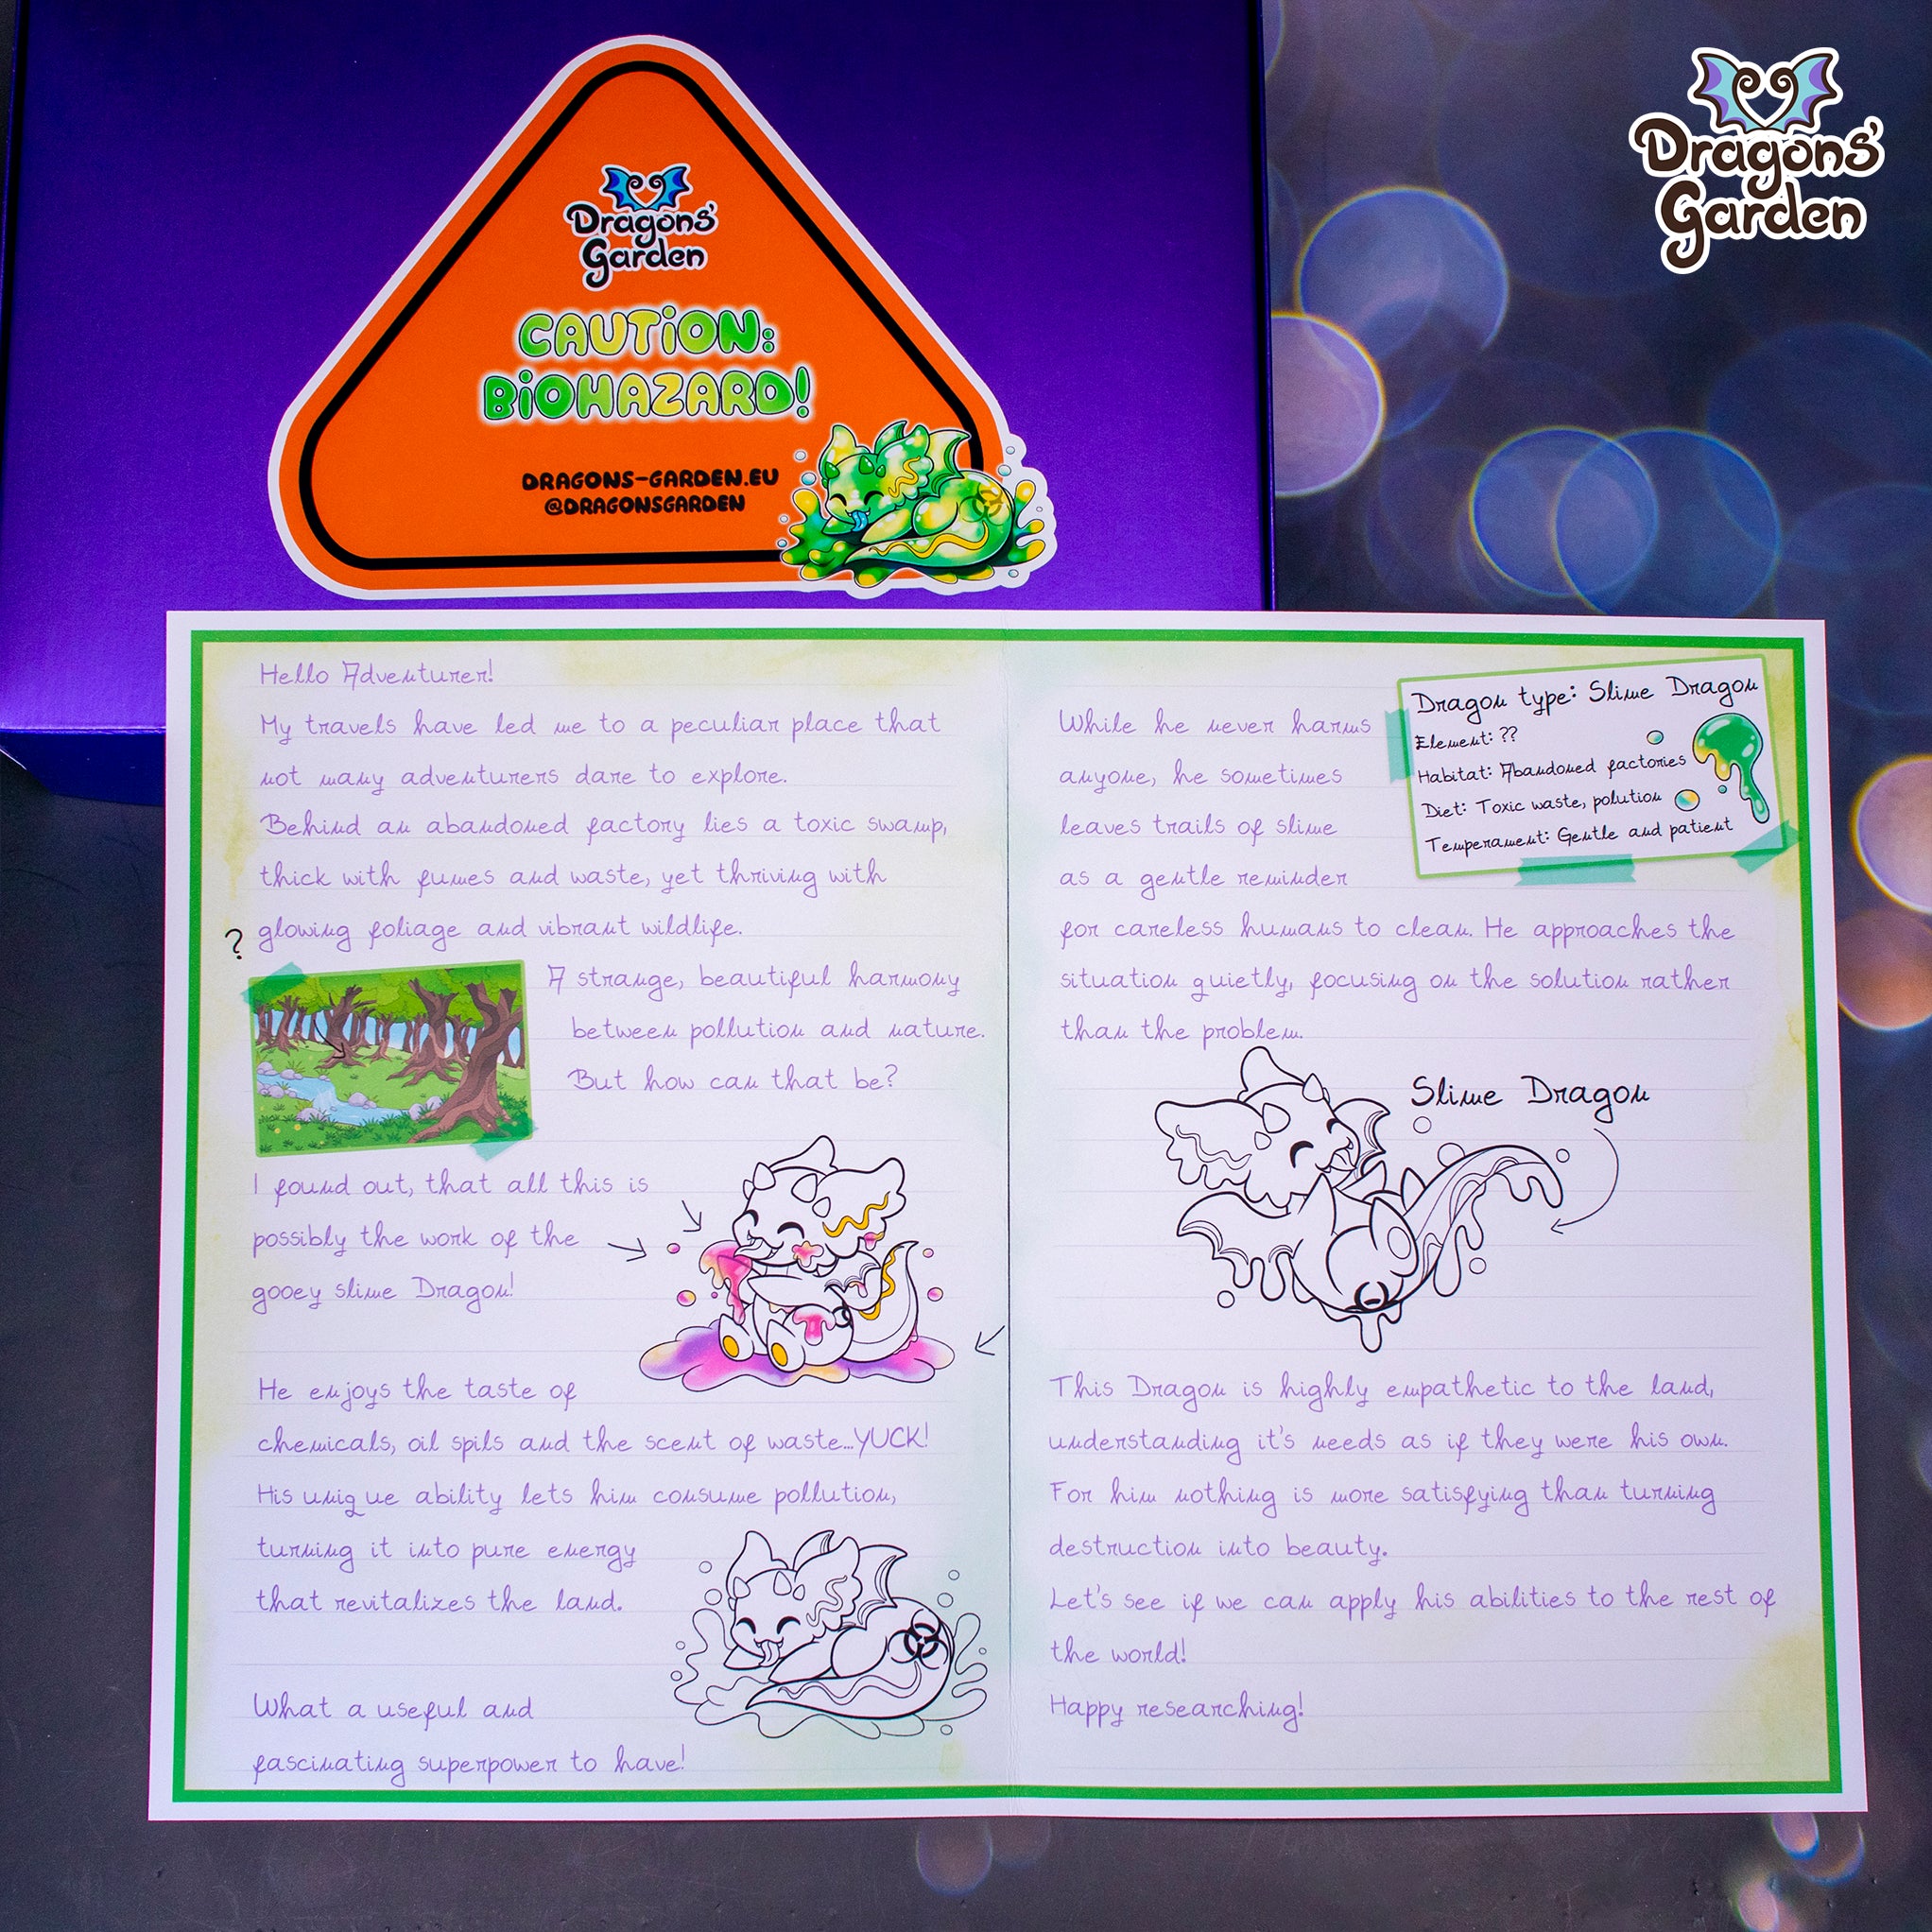 Dragons'
Garden
Dragons'
Garden
CAUTION:
BIOHAZARD!
DRAGONS-GARDEN.EU
@DRAGONSGARDEN
Hello Adventurer!
My travels have led me to a peculiar place that
not many adventurers dare to explore.
Behind an abandoned factory lies a toxic swamp,
thick with fumes and waste, yet thriving with
? glowing foliage and vibrant wildlife.
A strange, beautiful harmony
between pollution and nature.
But how can that be?
I found out, that all this is
possibly the work of the
gooey slime Dragon!
He enjoys the taste of
chemicals, oil spils and the scent of waste...YUCK!
His unique ability lets him consume pollution,
turning it into pure energy
that revitalizes the land.
What a useful and
fascinating superpower to have!
While he never harms
anyone, he sometimes
leaves trails of slime
as a gentle reminder
for careless humans to clean. He approaches the
situation quietly, focusing on the solution rather
than the problem.
Dragon type: Slime Dragon
Element: ??
Habitat: Abandoned factories
Diet: Toxic waste, polution
Temperament: Gentle and patient
Slime Dragon
This Dragon is highly empathetic to the land,
understanding it's needs as if they were his own.
For him nothing is more satisfying than turning
destruction into beauty.
Let's see if we can apply his abilities to the rest of
the world!
Happy researching!